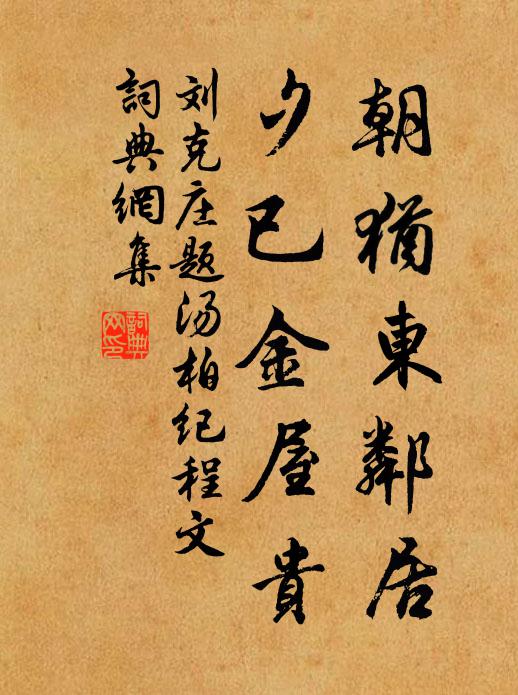 朝猶東鄰居
夕已金屋貴
刘克庄题汤柏纪程文
詞典網集
詞典網印